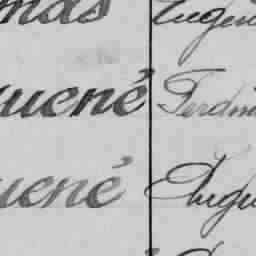 mas Eugen
uené Ferdin
uené Augu